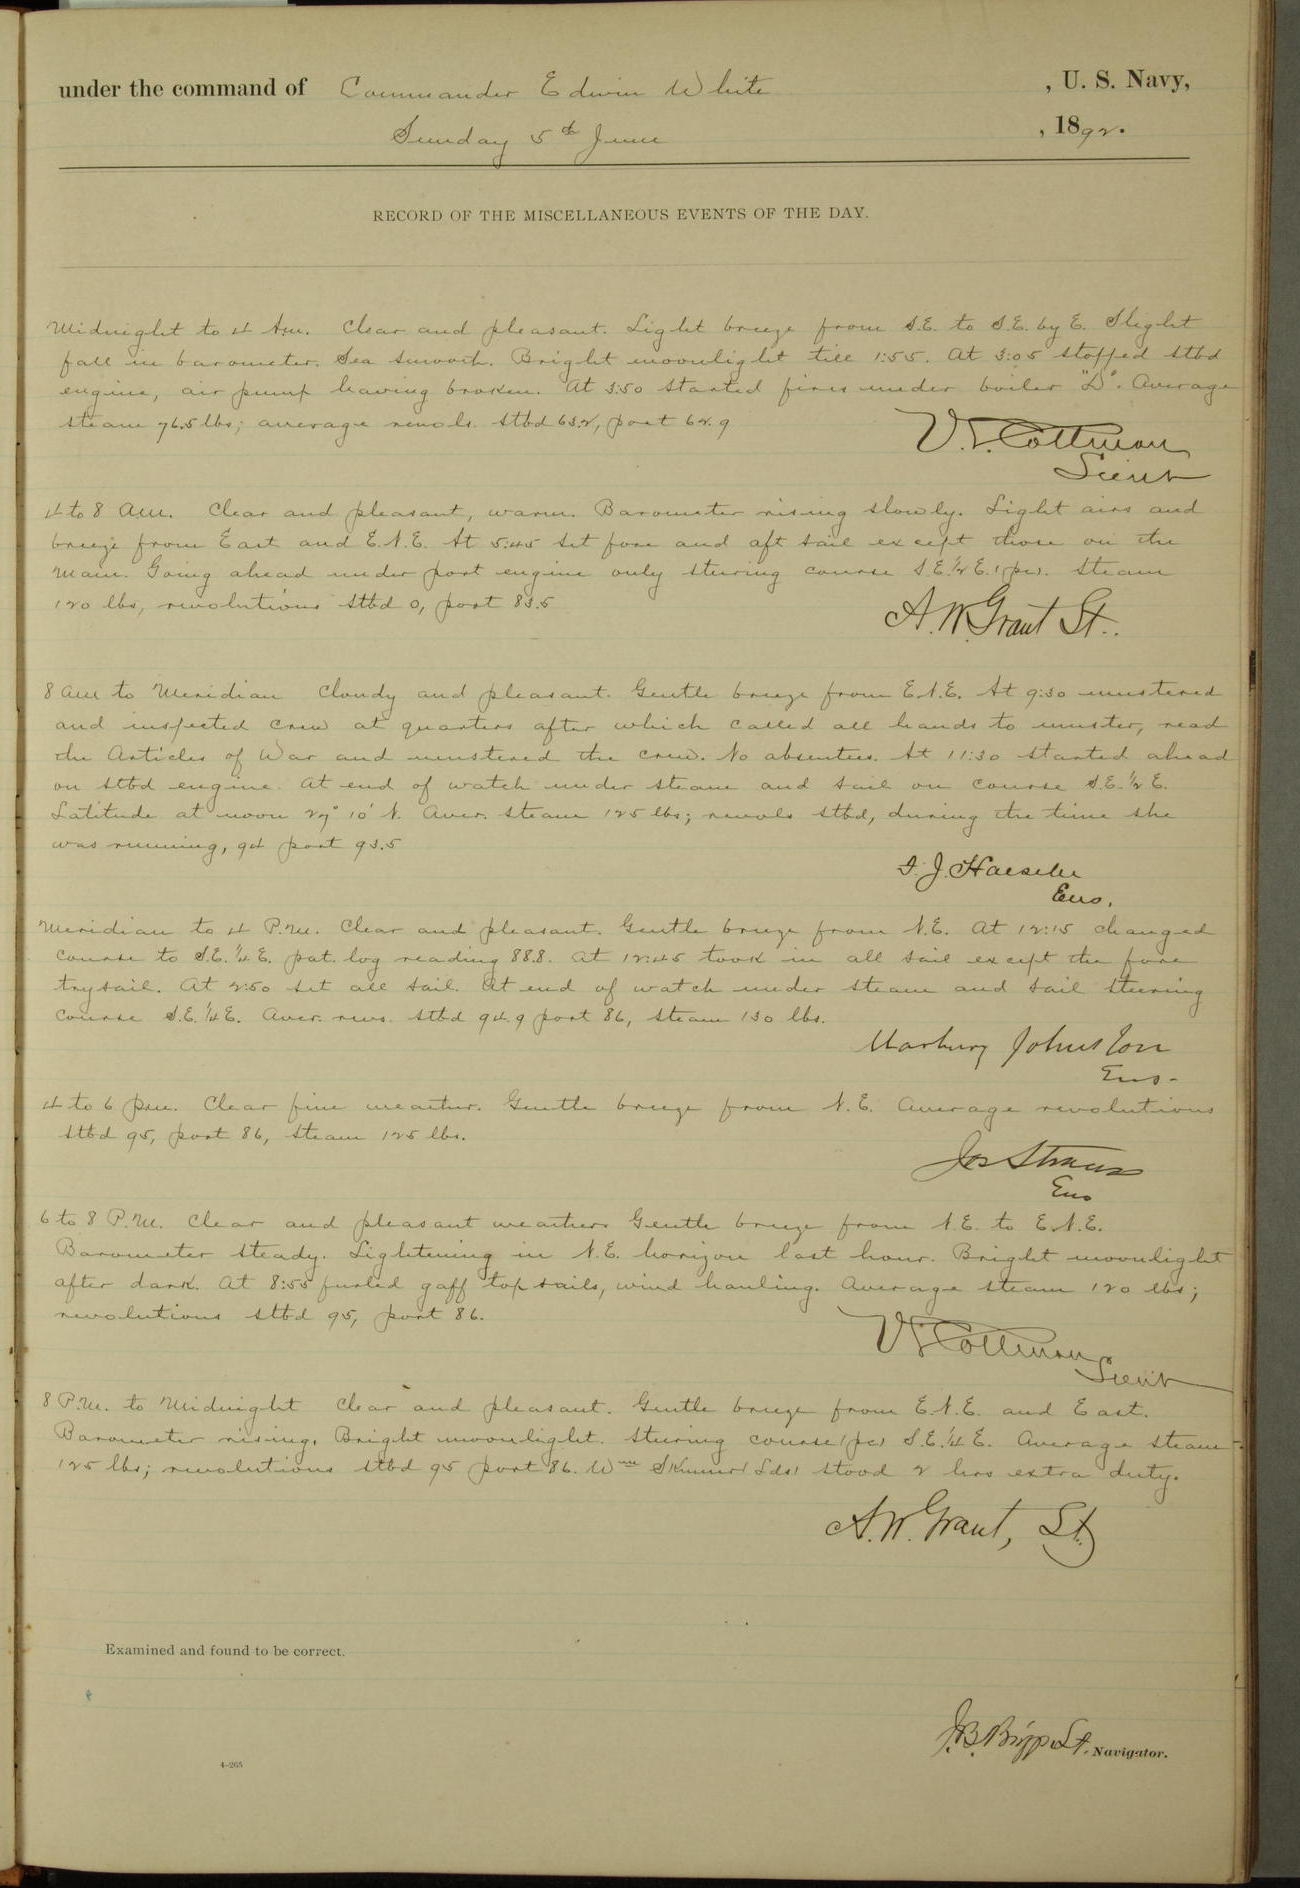 under the command of Commander Edwin White , U. S. Navy,
Sunday 5th June , 1892.
RECORD OF THE MISCELLANEOUS EVENTS OF THE DAY.
Midnight to 4 Am. Clear and pleasant. Light breeze from S.E. to S.E. by E. Slight
fall in barometer. Sea smooth. Bright moonlight till 1:55. At 3:05 stopped stbd
engine, air pump having broken. At 3:50 started fires under boiler "D". Average
steam 76.5 lbs; average revols. stbd 63.2, port 62.9
V.S. Cottman
Lieut
4 to 8 am. Clear and pleasant, warm. Barometer rising slowly. Light airs and
breeze from East and E.N.E. At 5:45 set fore and aft sail except those on the
Main. Going ahead under port engine only steering course S.E.½E. (pc). Steam
120 lbs, revolutions stbd 0, port 83.5
A.W. Grant Lt..
8 am to Meridian Cloudy and pleasant. Gentle breeze from E.N.E. At 9:30 mustered
and inspected crew at quarters after which called all hands to muster, read
the Articles of War and mustered the crew. No absentees. At 11:30 started ahead
on stbd engine. At end of watch under steam and sail on course S.E.½E.
Latitude at noon 27° 10' N. Aver. steam 125 lbs; revols stbd, during the time she
was running, 94 port 93.5
J. Haeseler
Ens.
Meridian to 4 P.M. Clear and pleasant. Gentle breeze from N.E. At 12:15 changed
course to S.E.¼E. pat. log reading 88.8. At 12:45 took in all sail except the fore
trysail. At 2:50 set all sail. At end of watch under steam and sail steering
course S.E.¼E. Aver. revs. stbd 94.9 port 86, steam 130 lbs.
Marbury Johnston
Ens-
4 to 6 pm. Clear fine weather. Gentle breeze from N.E. Average revolutions
stbd 95, port 86, steam 125 lbs.
Jos Strauss
Ens
6 to 8 P.M. Clear and pleasant weather. Gentle breeze from N.E. to E.N.E.
Barometer steady. Lightening in N.E. horizon last hour. Bright moonlight
after dark. At 8:55 furled gaff topsails, wind hauling. Average steam 120 lbs;
revolutions stbd 95, port 86.
V.S. Cottman
Lieut
8 P.M. to Midnight Clear and pleasant. Gentle breeze from E.N.E. and East.
Barometer rising. Bright moonlight. Steering course (pc) S.E.¼E. Average steam
125 lbs; revolutions stbd 95 port 86. Wm Skinner (Lds) stood 2 hrs extra duty.
A.W. Grant, Lt.
Examined and found to be correct.
J.B. Lt. Navigator.
4-265